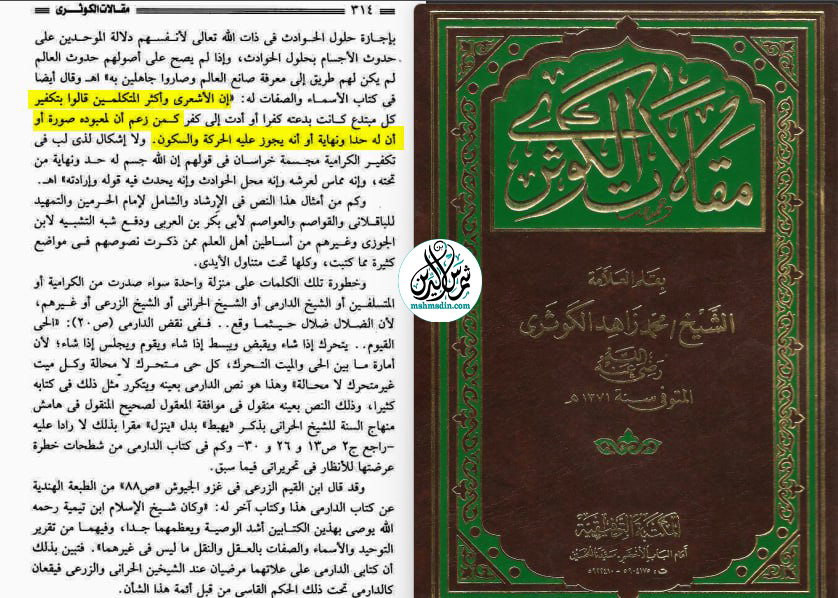 ٣١٤
مقالات الكوثرى
بإجازة حلول الحوادث فى ذات الله تعالى لأنفسهم دلالة الموحدين على
حدوث الأجسام بحلول الحوادث، وإذا لم يصح على أصولهم حدوث العالم
لم يكن لهم طريق إلى معرفة صانع العالم وصاروا جاهلين به» اهـ وقال أيضا
فى كتاب الأسماء والصفات له: «إن الأشعرى وأكثر المتكلمين قالوا بتكفير
كل مبتدع كانت بدعته كفرا أو أدت إلى كفر كمن زعم أن لمعبوده صورة أو
أن له حدا ونهاية أو أنه يجوز عليه الحركة والسكون. ولا إشكال لذى لب فى
تكفير الكرامية مجسمة خراسان فى قولهم إن الله جسم له حد ونهاية من
تحته، وإنه مماس لعرشه وإنه محل الحوادث وإنه يحدث فيه قوله وإرادته» اهـ.
وكم من أمثال هذا النص فى الإرشاد والشامل لإمام الحرمين والتمهيد
للباقلانى والقواصم والعواصم لأبى بكر بن العربى ودفع شبه التشبيه لابن
الجوزى وغيرهم من أساطين أهل العلم ممن ذكرت نصوصهم فى مواضع
كثيرة مما كتبت، وكلها تحت متناول الأيدى.
وخطورة تلك الكلمات على منزلة واحدة سواء صدرت من الكرامية أو
المتسلفين أو الشيخ الدارمى أو الشيخ الحرانى أو الشيخ الزرعى أو غيرهم،
لأن الضلال ضلال حيثما وقع.. ففى نقض الدارمى (ص٢٠): «الحى
القيوم.. يتحرك إذا شاء ويقبض ويبسط إذا شاء ويقوم ويجلس إذا شاء؛ لأن
أمارة ما بين الحى والميت التحرك، كل حى متحرك لا محالة وكل ميت
غيرمتحرك لا محالة» وهذا هو نص الدارمى بعينه ويتكرر مثل ذلك فى كتابه
كثيرا، وذلك النص بعينه منقول فى موافقة المعقول لصحيح المنقول فى هامش
منهاج السنة للشيخ الحرانى بذكر «يهبط» بدل «ينزل» مقرا بذلك لا رادا عليه
-راجع ج٢ ص١٣ و ٢٦ و ٣٠- وكم فى كتاب الدارمى من شطحات خطرة
عرضتها للأنظار فى تحريراتى فيما سبق.
وقد قال ابن القيم الزرعى فى غزو الجيوش «ص٨٨» من الطبعة الهندية
عن كتاب الدارمى هذا وكتاب آخر له: «وكان شيخ الإسلام ابن تيمية رحمه
الله يوصى بهذين الكتابين أشد الوصية ويعظمهما جدا، وفيهما من تقرير
التوحيد والأسماء والصفات بالعقل والنقل ما ليس فى غيرهما». فتبين بذلك
أن كتابى الدارمى على علاتهما مرضيان عند الشيخين الحرانى والزرعى فيقعان
كالدارمى تحت ذلك الحكم القاسى من قبل أئمة هذا الشأن.
مقالات الكوثرى
بقلم العلامة
الشيخ/ محمد زاهد الكوثرى
رضى الله عنه
المتوفى سنة ١٣٧١ هـ
المكتبة التوفيقية
أمام الباب الأخضر سيدنا الحسين
شمس الدين
mahmsdin.com